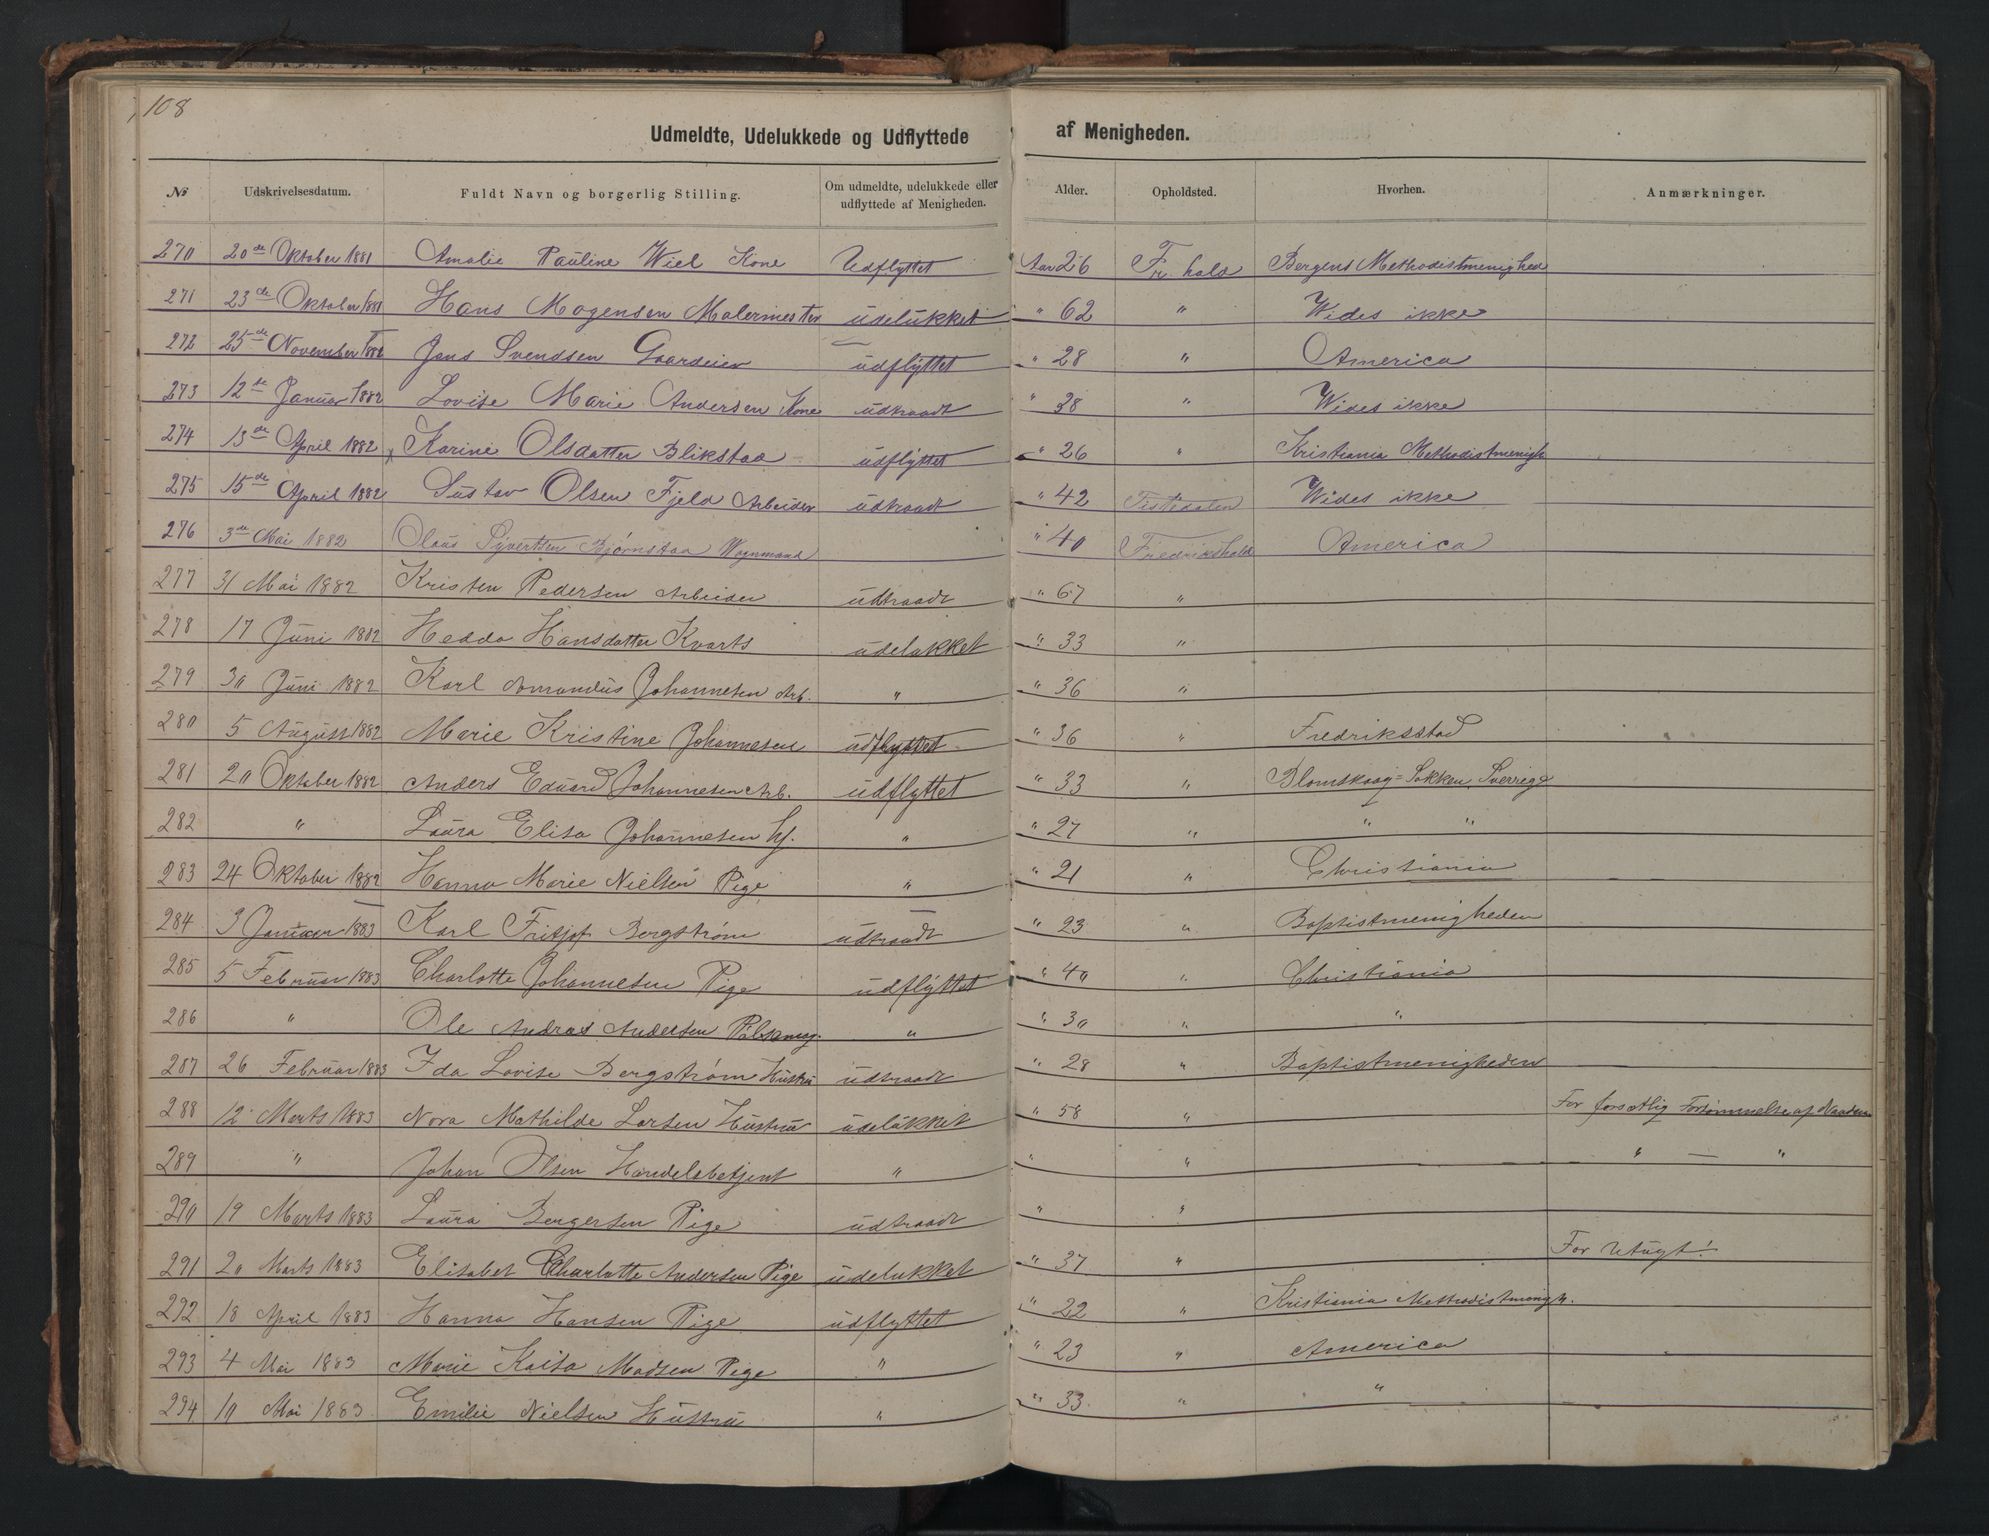 108
Udmeldte, Udelukkede og Udflyttede af Menigheden.
No Udskrivelsesdatum. Fuldt Navn og borgerlig Stilling. Om udmeldte, udelukkede eller udflyttede af Menigheden. Alder. Opholdsted. Hvorhen. Anmærkninger.
270 20de Oktober 1881 Amalie Pauline Wiel Kone Udflyttet Aar 26 Fr. hald Bergens Methodistmenighed
271 23de Oktober 1881 Hans Mogensen Malermester udelukket " 62 " Wides ikke
272 25de November 1881 Jens Svendsen udflyttet " 28 " America
273 12te Januar 1882 Lovise Marie Andersen Kone udtraadt " 38 " Wides ikke
274 13de April 1882 Karine Olsdatter Blikstad udflyttet " 26 " Kristiania Methodistmenigh
275 15de April 1882 Gustav Olsen Fjeld Arbeider udtraadt " 42 Tistedalen Wides ikke
276 3de Mai 1882 Olaus Syvertsen Bjørnstad Vognmand " 40 Fredrikshald America
277 31 Mai 1882 Kristen Pedersen Arbeider udtraadt " 67 "
278 17 Juni 1882 Hedda Hansdatter Kvarts udelukket " 33 "
279 30 Juni 1882 Karl Amandus Johannesen Arb. " " 36 "
280 5 August 1882 Marie Kristine Johannesen udflyttet " 36 " Fredriksstad
281 20 Oktober 1882 Anders Eduard Johannesen Arb. udflyttet " 33 " Blomskaag=Sokken, Sverrige
282 " Laura Elisa Johannesen " " 27 " " "
283 24 Oktober 1882 Hanna Marie Nielsen Pige " " 21 " Christiania
284 3 Januar 1883 Karl Fritjof Bergstrøm udtraadt " 23 " Baptistmenigheden
285 5 Februar 1883 Charlotte Johannesen Pige udflyttet " 40 " Christiania
286 " Ole Andreas Andersen " " 30 " "
287 26 Februar 1883 Ida Lovise Bergstrøm Hustru udtraadt " 28 " Baptistmenigheden
288 12 Marts 1883 Nora Mathilde Larsen Hustru udelukket " 58 " For forsætlig Forsømmelse af Naadem
289 " Johan Olsen Handelsbetjent " " " " — "
290 19 Marts 1883 Laura Bergersen Pige udtraadt " "
291 20 Marts 1883 Elisabet Charlotte Andersen Pige udelukket " 37 " For Utugt!
292 18 April 1883 Hanna Hansen Pige udflyttet " 22 " Kristiania Methodistmenigh.
293 4 Mai 1883 Marie Kaisa Madsen Pige " " 23 " America
294 10 Mai 1883 Emilie Nielsen Hustru " " 33 " "